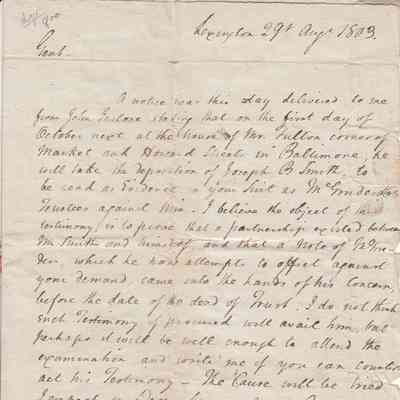 Lexington 29th Augt 1803.
Gent.
A notice was this day delivered to me
from John stating that on the first day of
October next at the house of Mr. Fulton corner of
Market and Howard Streets in Baltimore, he
will take the deposition of Joseph B Smith, to
be read as Evidence in your Suit as
Trustees against him. I believe the object of
testimony, is to prove that a partnership existed between
Mr Smith and himself, and that a Note of
, which he now attempts to offset against
your demand, came into the hands of his concern
before the date of the deed of Trust. I do not think
such Testimony if procured will avail him, but
perhaps it will be well enough to attend the
examination and write me if you can counter
act his Testimony — The Cause will be tried